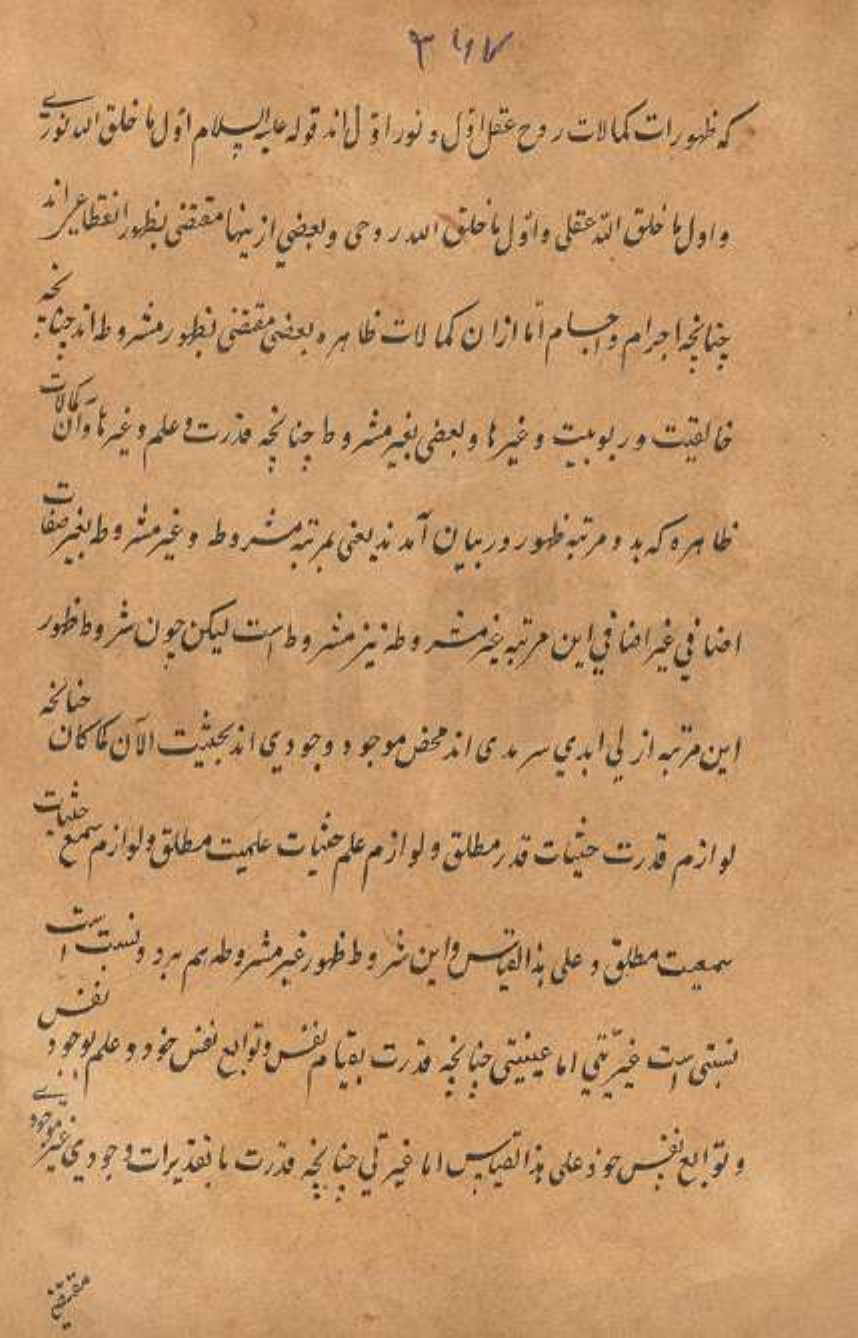 که ظهورات کمالات روح عقل اول و نور اول اند قوله علیه السلام اول ما خلق الله نوری
و اول ما خلق الله عقلی و اول ما خلق الله روحی و بعضی ازینها مقتضی بظهور انقطاعی اند
چنانچه اجرام و اجسام اما ازان کمالات ظاهره بعضی مقتضی بظهور مشروط اند چنانچه
خالقیت و ربوبیت و غیرها و بعضی بغیر مشروط چنانچه قدرت و علم و غیرها و آن کمالات
ظاهره که بدو مرتبه ظهور در بیان آمدند یعنی بمرتبه مشروطه و غیر مشروط بغیر صفات
اضافی غیر اضافی این مرتبه غیر مشروطه نیز مشروط است لیکن چون شروط ظهور
این مرتبه ازلی ابدی سرمدی اند محض موجود وجودی اند بحیثیت الآن کما کان چنانچه
لوازم قدرت حثیات قدر مطلق و لوازم علم حثیات علمیت مطلق و لوازم سمع حثیات
سمعیت مطلق و علی هذا القیاس و این شروط ظهور غیر مشروطه هم بر دو نسبت است
نسبتی است غیریتی اما عینیتی چنانچه قدرت بقیام نفس و توابع نفس خود و علم بوجود نفس
و توابع نفس خود علی هذا القیاس اما غیرتی چنانچه قدرت ما بتقدیرات وجودی غیر موجودی